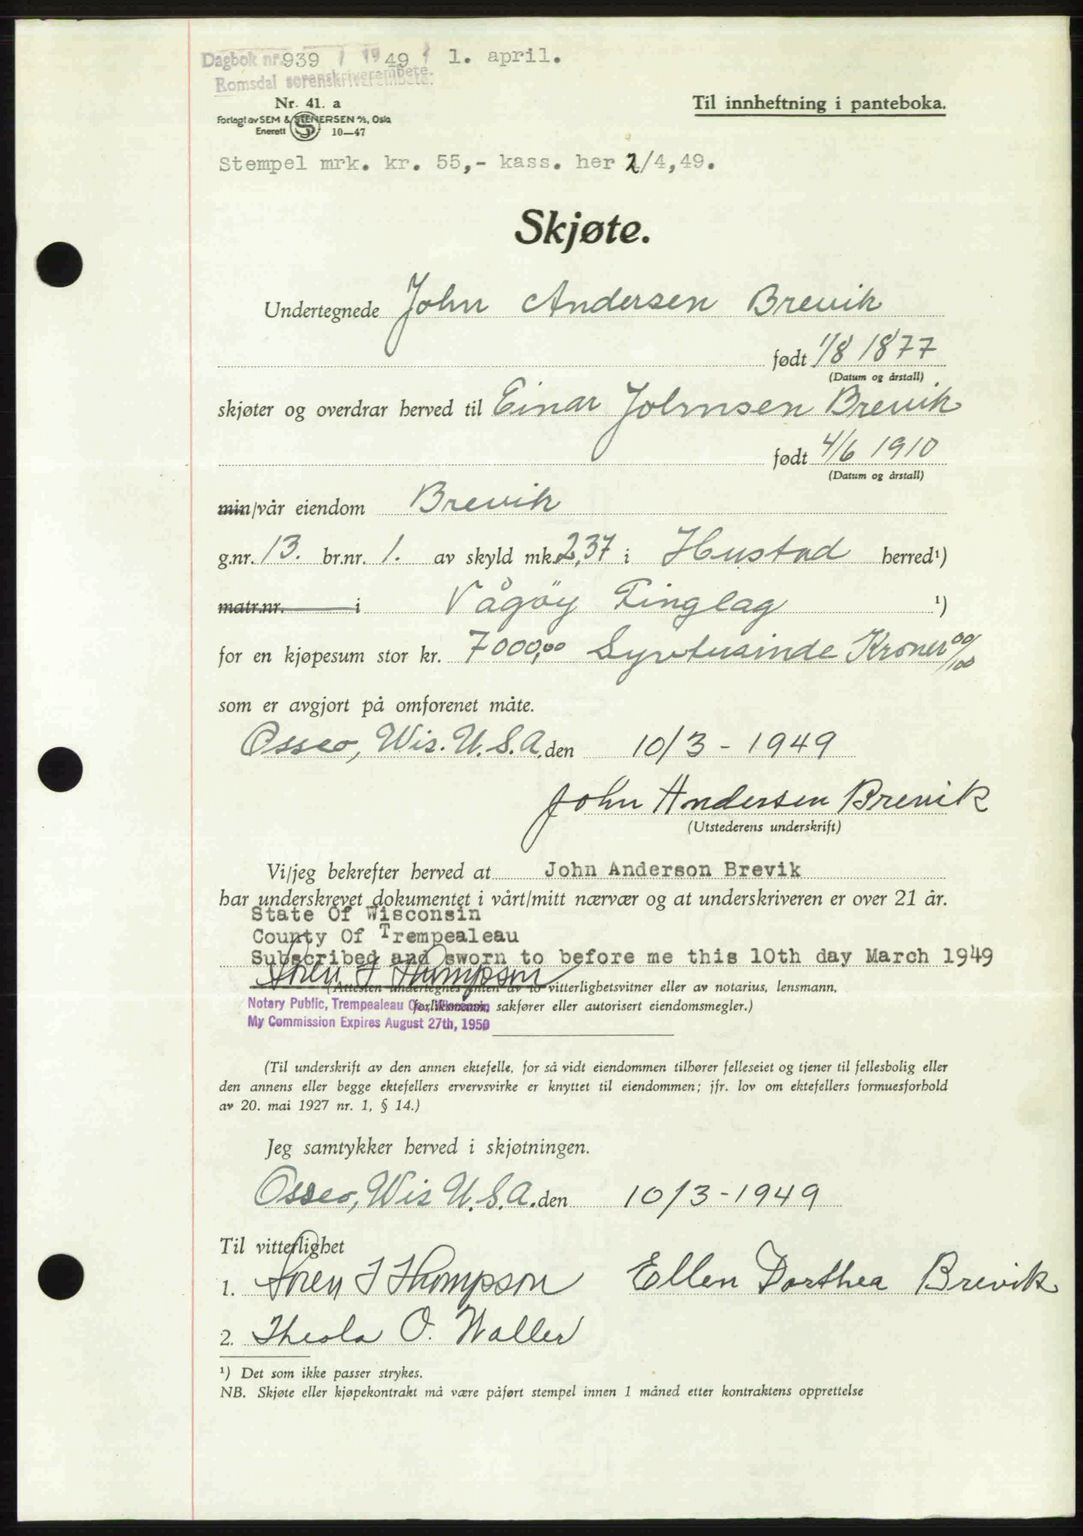 Dagbok nr. 939 / 1949 1. april.
Romsdal sorenskriverembete.
Nr. 41. a
Til innheftning i panteboka.
Forlagt av SEM & STENERSEN A/S, Oslo
Enerett S 10—47
Stempel mrk. kr. 55,- kass. her 2/4,49.
Skjøte.
Undertegnede John Andersen Brevik
født 1/8 1877
(Datum og årstall)
skjøter og overdrar herved til Einar Johnsen Brevik
født 4/6 1910
(Datum og årstall)
min/vår eiendom Brevik
g.nr. 13. br.nr. 1. av skyld mk. 2,37 i Hustad herred¹)
matr.nr. i Vågøy Tinglag ¹)
for en kjøpesum stor kr. 7000,00 Syvtusinde Kroner 00/100
som er avgjort på omforenet måte.
Osseo, Wis. U.S.A. den 10/3 - 1949
John Andersen Brevik
(Utstederens underskrift)
Vi/jeg bekrefter herved at John Anderson Brevik
har underskrevet dokumentet i vårt/mitt nærvær og at underskriveren er over 21 år.
State Of Wisconsin
County Of Trempealeau
Subscribed and sworn to before me this 10th day March 1949
Soren J Thompson
(Attesten undertegnes enten av to vitterlighetsvitner eller av notarius, lensmann,
Notary Public, Trempealeau Co., Wisconsin
forliksmann, sakfører eller autorisert eiendomsmegler.)
My Commission Expires August 27th, 1950
(Til underskrift av den annen ektefelle, for så vidt eiendommen tilhører felleseiet og tjener til fellesbolig eller
den annens eller begge ektefellers ervervsvirke er knyttet til eiendommen; jfr. lov om ektefellers formuesforhold
av 20. mai 1927 nr. 1, § 14.)
Jeg samtykker herved i skjøtningen.
Osseo, Wis U.S.A. den 10/3 - 1949
Til vitterlighet
1. Soren J Thompson Ellen Dorthea Brevik
2. Theola O. Waller
¹) Det som ikke passer strykes.
NB. Skjøte eller kjøpekontrakt må være påført stempel innen 1 måned etter kontraktens opprettelse